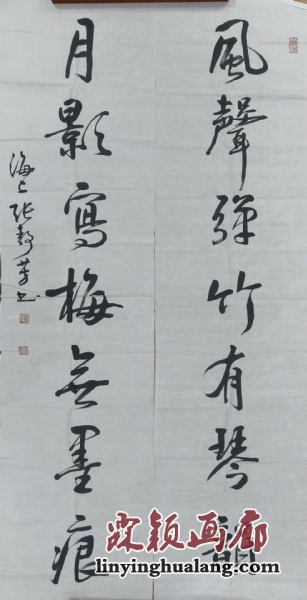 風聲彈竹有琴韻
月影寫梅無墨痕
海上張静芳書
霖颖画廊
linyinghualang.com